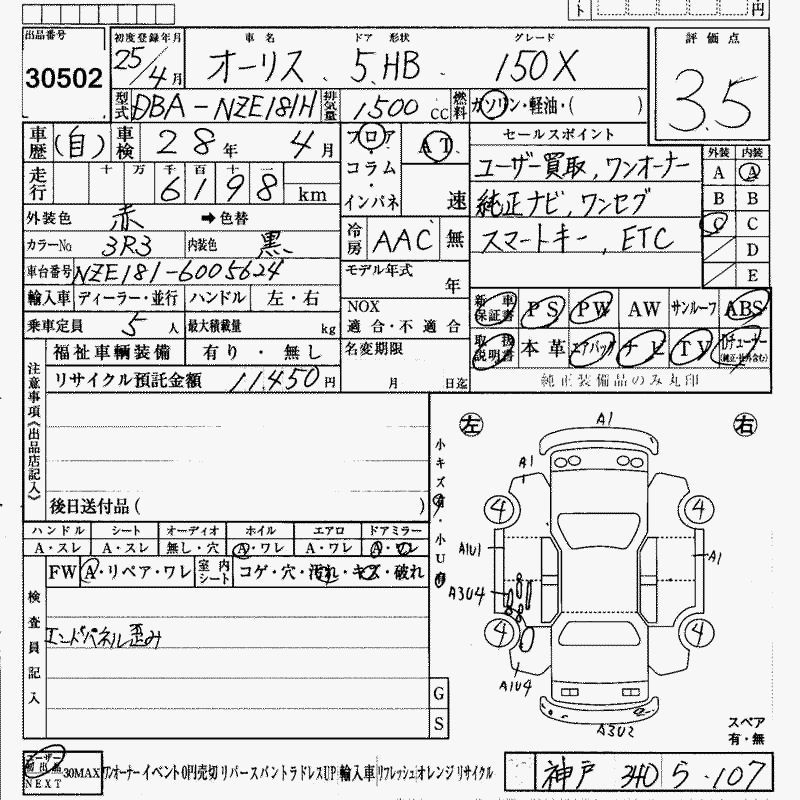 ト 円
出品番号 初度登録年月 車名 ドア 形状 グレード 評価点
30502 25年4月 オーリス 5 HB 150X 3.5
型式 DBA-NZE181H 排気量 1500 CC 燃料 ガソリン・軽油・( )
車歴 (自) 車検 28年 4月 フロア AT セールスポイント 外装 内装
走行 十 万 千 百 十 一 コラム ユーザー買取, ワンオーナー A A
6198 km インパネ 速 純正ナビ, ワンセグ B B
外装色 赤 ➡色替 冷房 AAC 無 スマートキー, ETC C C
カラーNo 3R3 内装色 黒 D
車台番号 NZE181-6005624 モデル年式 年 E
輸入車 ディーラー・並行 ハンドル 左・右 NOX 適合・不適合 新車保証書 PS PW AW サンルーフ ABS
乗車定員 5人 最大積載量 kg 取扱説明書 本革 エアバック ナビ TV
福祉車輌装備 有り・無し 名変期限 純正装備品のみ丸印
リサイクル預託金額 11,450円 月 日迄
注意事項《出品店記入》
後日送付品( )
小キズ有・小U有
左 右
ハンドル シート オーディオ ホイル エアロ ドアミラー
A・スレ A・スレ 無し・穴 A・ワレ A・ワレ A・ワレ
FW A・リペア・ワレ 室内シート コゲ・穴・汚れ・キズ・破れ
検査員記入
エンドパネル歪み
G
S
A1
A1
4 4
A1U1 A1
A3U4
4 4
A1U4
A3U2
スペア
有・無
NEXT 30MAX ワンオーナー イベント 0円売切 リバース バントラ ドレスUP 輸入車 リフレッシュ オレンジ リサイクル
神戸 340 5-107